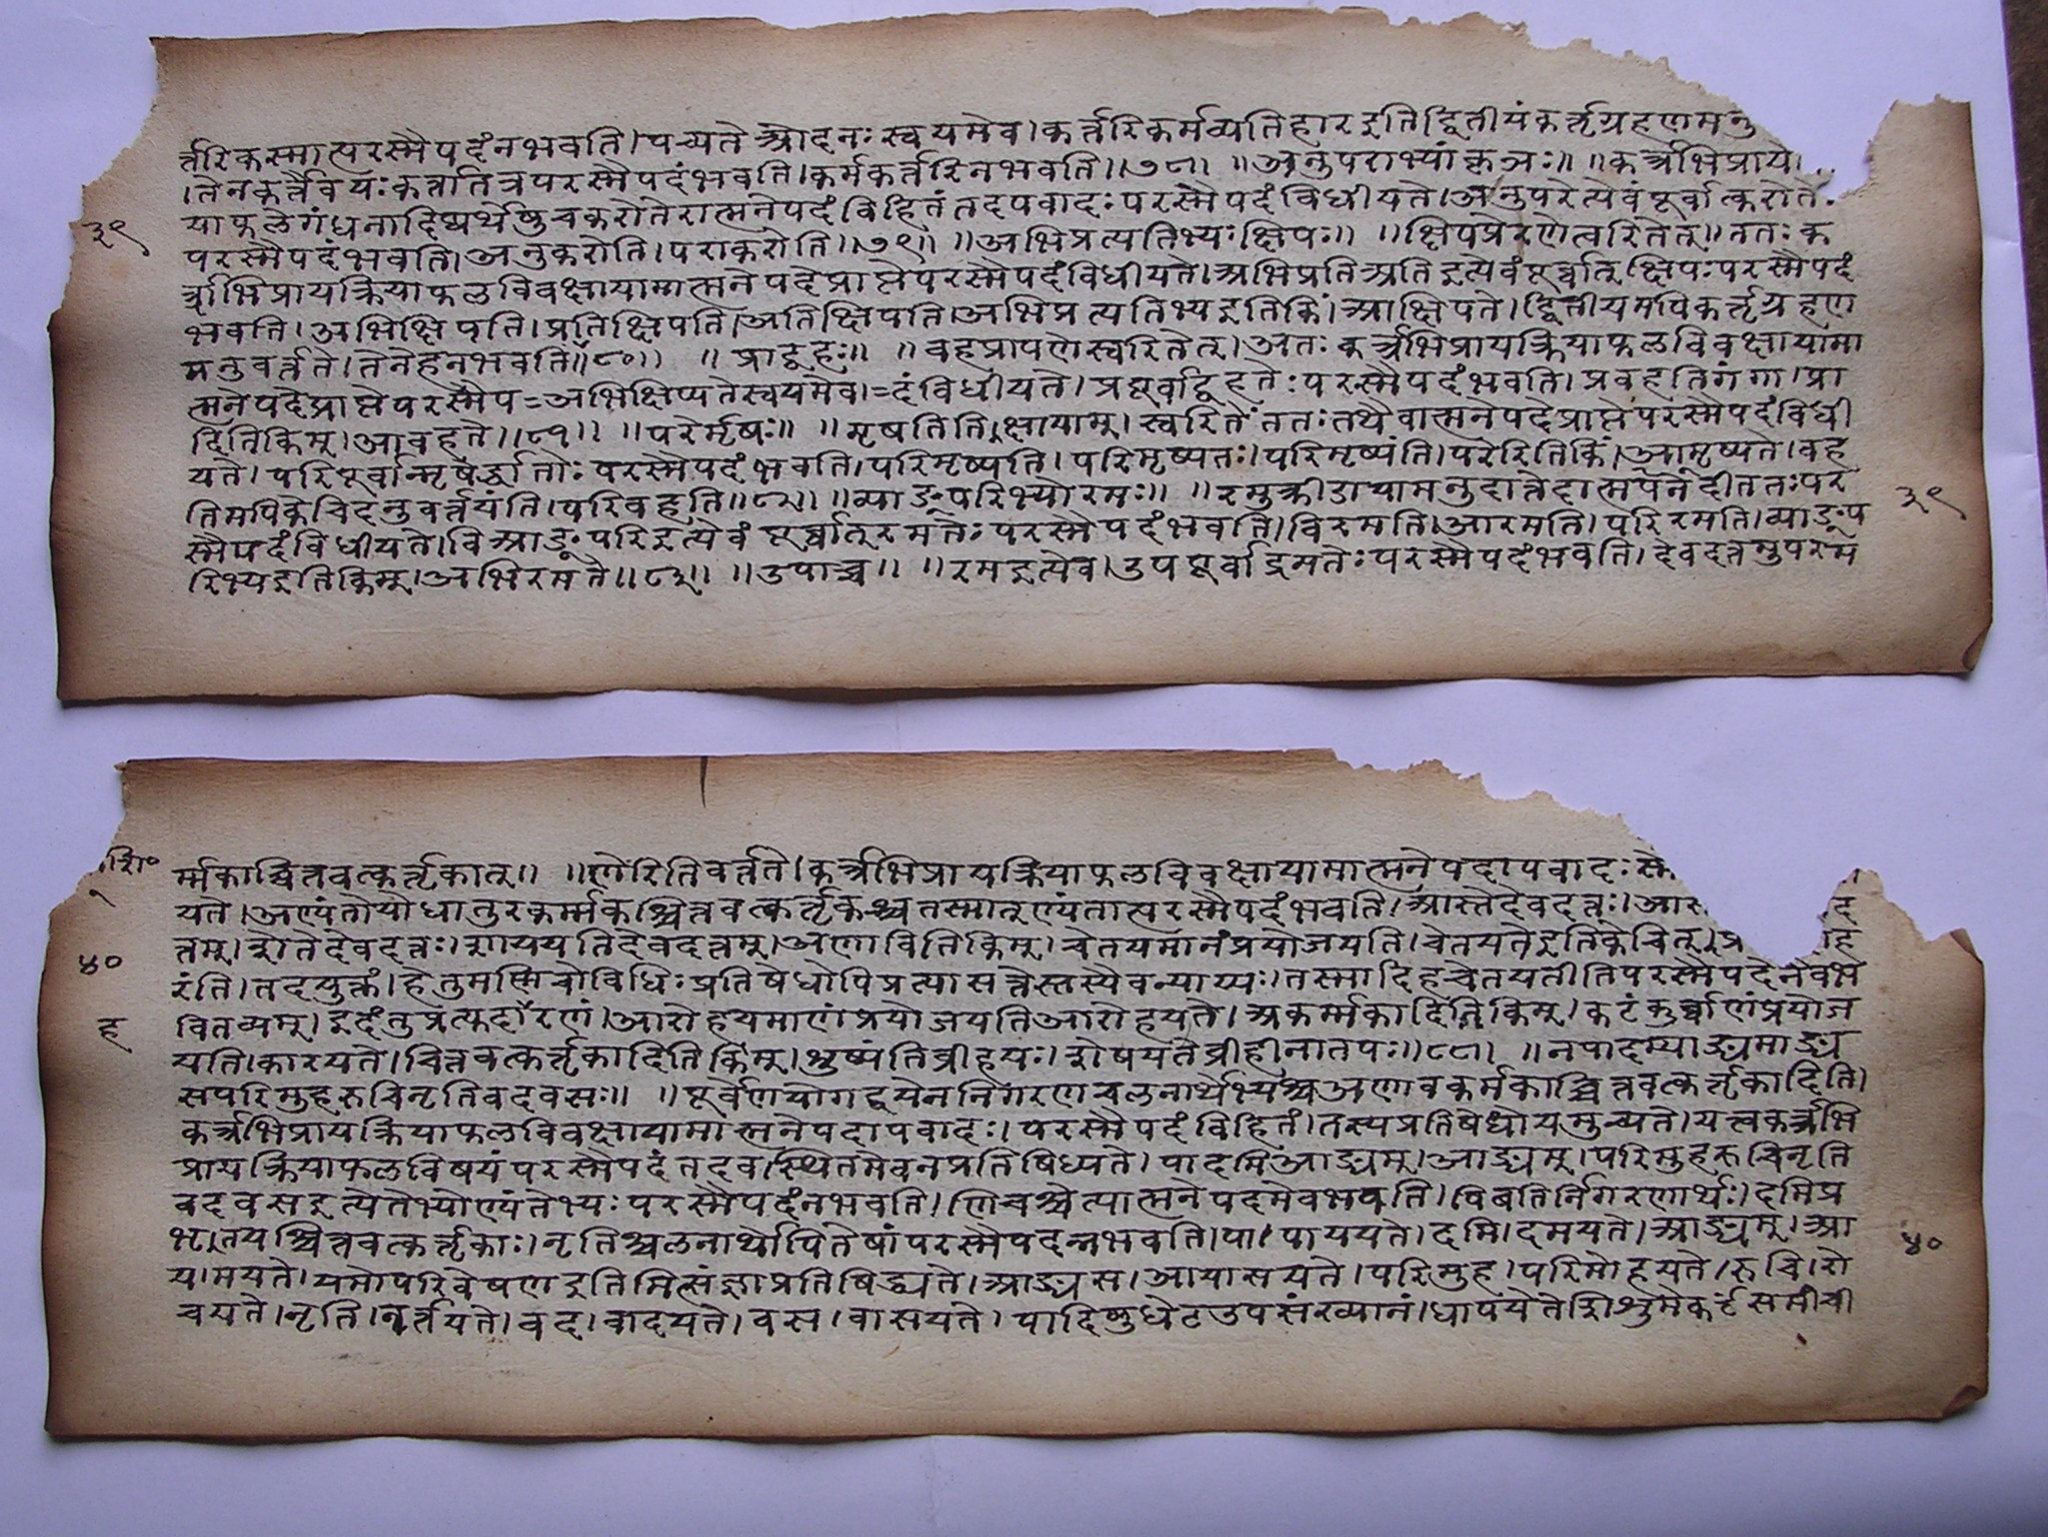 र्त्तरिकस्मात्परस्मैपदंनभवति।पच्यते ओदनः स्वयमेव।कर्त्तरिकर्मव्यतिहार इति द्वितीयंकर्तृग्रहणमनु
।तेनकर्त्तैवयःकर्त्तातत्रपरस्मैपदंभवति।कर्मकर्त्तरिनभवति॥७८॥ ॥अनुपराभ्यांकृञः॥ ॥कर्त्रभिप्राये
३९
याफलेगंधनादिष्वर्थेषुचकरोतेरात्मनेपदंविहितंतदपवादः परस्मैपदंविधीयते।अनुपरेत्येवंपूर्वात्करोते
परस्मैपदंभवति।अनुकरोति।पराकरोति॥७९॥ ॥अभिप्रत्यतिभ्यःक्षिपः॥ ॥क्षिपप्रेरणेस्वरितेत्॥ततः क
र्त्राभिप्रायक्रियाफलविवक्षायामात्मनेपदेप्राप्तेपरस्मैपदंविधीयते।अभिप्रतिअतिइत्येवंपूर्व्वात् क्षिपःपरस्मैपदं
भवति। अभिक्षिपति।प्रतिक्षिपति।अतिक्षिपति।अभिप्रत्यतिभ्यइतिकिं।आक्षिपते।द्वितीयमपिकर्तृग्रहण
मनुवर्त्तते।तेनेहनभवति॥८०॥ ॥प्राद्वहः॥ ॥वहप्रापणेस्वरितेत्।अतः कर्त्रभिप्रायक्रियाफलविवक्षायामा
त्मनेपदेप्राप्तेपरस्मैप=अभिक्षिप्यतेस्वयमेव।=दंविधीयते। प्रपूर्वाद्वहतेः परस्मैपदंभवति। प्रवहतिगंगा।प्रा
दितिकिम्।आवहते॥८१॥ ॥परेर्मृषः॥ ॥मृषतितिक्षायाम्।स्वरितेततःतथैवात्मनेपदेप्राप्तेपरस्मैपदंविधी
यते।परिपूर्वान्मृषेर्द्धातोः परस्मैपदंभवति।परिमृष्यति।परिमृष्यतः।परिमृष्यंति।परेरितिकिं।आमृष्यते।वह
तिमपिकेचिदनुवर्त्तयंति।परिवहति॥८२॥ ॥व्याङ्परिभ्योरमः॥ ॥रमुक्रीडायामनुदात्तेदात्मपनेदीततःपर
३९
स्मैपदंविधीयते।विआङ्परिइत्येवंपूर्व्वात्रमतेः परस्मैपदंभवति।विरमति।आरमति।परिरमति।व्याङ्प
रिभ्यइतिकिम्।अभिरमते॥८३॥ ॥उपाच्च॥ ॥रमइत्येव।उपपूर्वाद्रमतेःपरस्मैपदंभवति।देवदत्तमुपरम
र्म्मकाच्चित्तवत्कर्तृकात्॥ ॥णेरितिवर्त्तते।कर्त्रभिप्रायक्रियाफलविवक्षायामात्मनेपदापवादः
यते।अण्यंतोयोधातुरकर्म्मकश्चित्तवत्कर्तृकश्चतस्मात्ण्यंतात्परस्मैपदंभवति।आस्तेदेवदत्तः।
त्तम्।शेतेदेवदत्तः।शाययतिदेवदत्तम्।अणावितिकिम्।चेतयमानंप्रयोजयति।चेतयतेइतिकेचित्
४०
रंति।तदयुक्तं।हेतुमण्णिचोविधिः प्रतिषेधोपिप्रत्यासत्तेस्तस्यैवन्याय्यः।तस्मादिहचेतयतीतिपरस्मैपदेनैवभ
ह
वितव्यम्।इदंतुप्रत्युदाहरणं।आरोहयमाणंप्रयोजयतिआरोहयते।अकर्म्मकादितिकिम्।कटंकुर्व्वाणंप्रयोज
यति।कारयते।चित्तवत्कर्तृकादितिकिम्।शुष्यंतिव्रीहयः।शोषयतेव्रीहीनातपः॥८८॥ ॥नपादम्याङ्यमाङ्य
सपरिमुहरुचिनृतिवदवसः॥ ॥पूर्वेणयोगद्वयेननिगरणचलनार्थेभ्यश्चअणावकर्मकाच्चित्तवत्कर्तृकादिति।
कर्त्रभिप्रायक्रियाफलविवक्षायामात्मनेपदापवादः।परस्मैपदंविहितं।तस्यप्रतिषेधोयमुच्यते।यत्त्वकर्त्रभि
प्रायक्रियाफलविषयंपरस्मैपदंतदव।स्थितमेवनप्रतिषिध्यते। पादमिआङ्यम्।आङ्यस्।परिमुहरुचिनृति
वदवसइत्येतेभ्योण्यंतेभ्यः परस्मैपदंनभवति।णिचश्चेत्यात्मनेपदमेवभवति।पिबतिर्निगरणार्थः।दमिप्र
भृतयश्चित्तवत्कर्तृकाः।नृतिश्चलनार्थोपितेषांपरस्मैपदन्नभवति।पा।पाययते।दमि।दमयते।आङ्यम्।आ
४०
यामयते।यमोपरिवेषणइतिमित्संज्ञाप्रतिषिद्ध्यते।आङ्यस।आयासयते।परिमुह।परिमोहयते।रुचि।रो
चयते।नृति।नर्त्तयते।वद।वादयते।वस।वासयते।पादिषुधेटउपसंख्यानं।धापयेतेशिशुमेकंसमीची